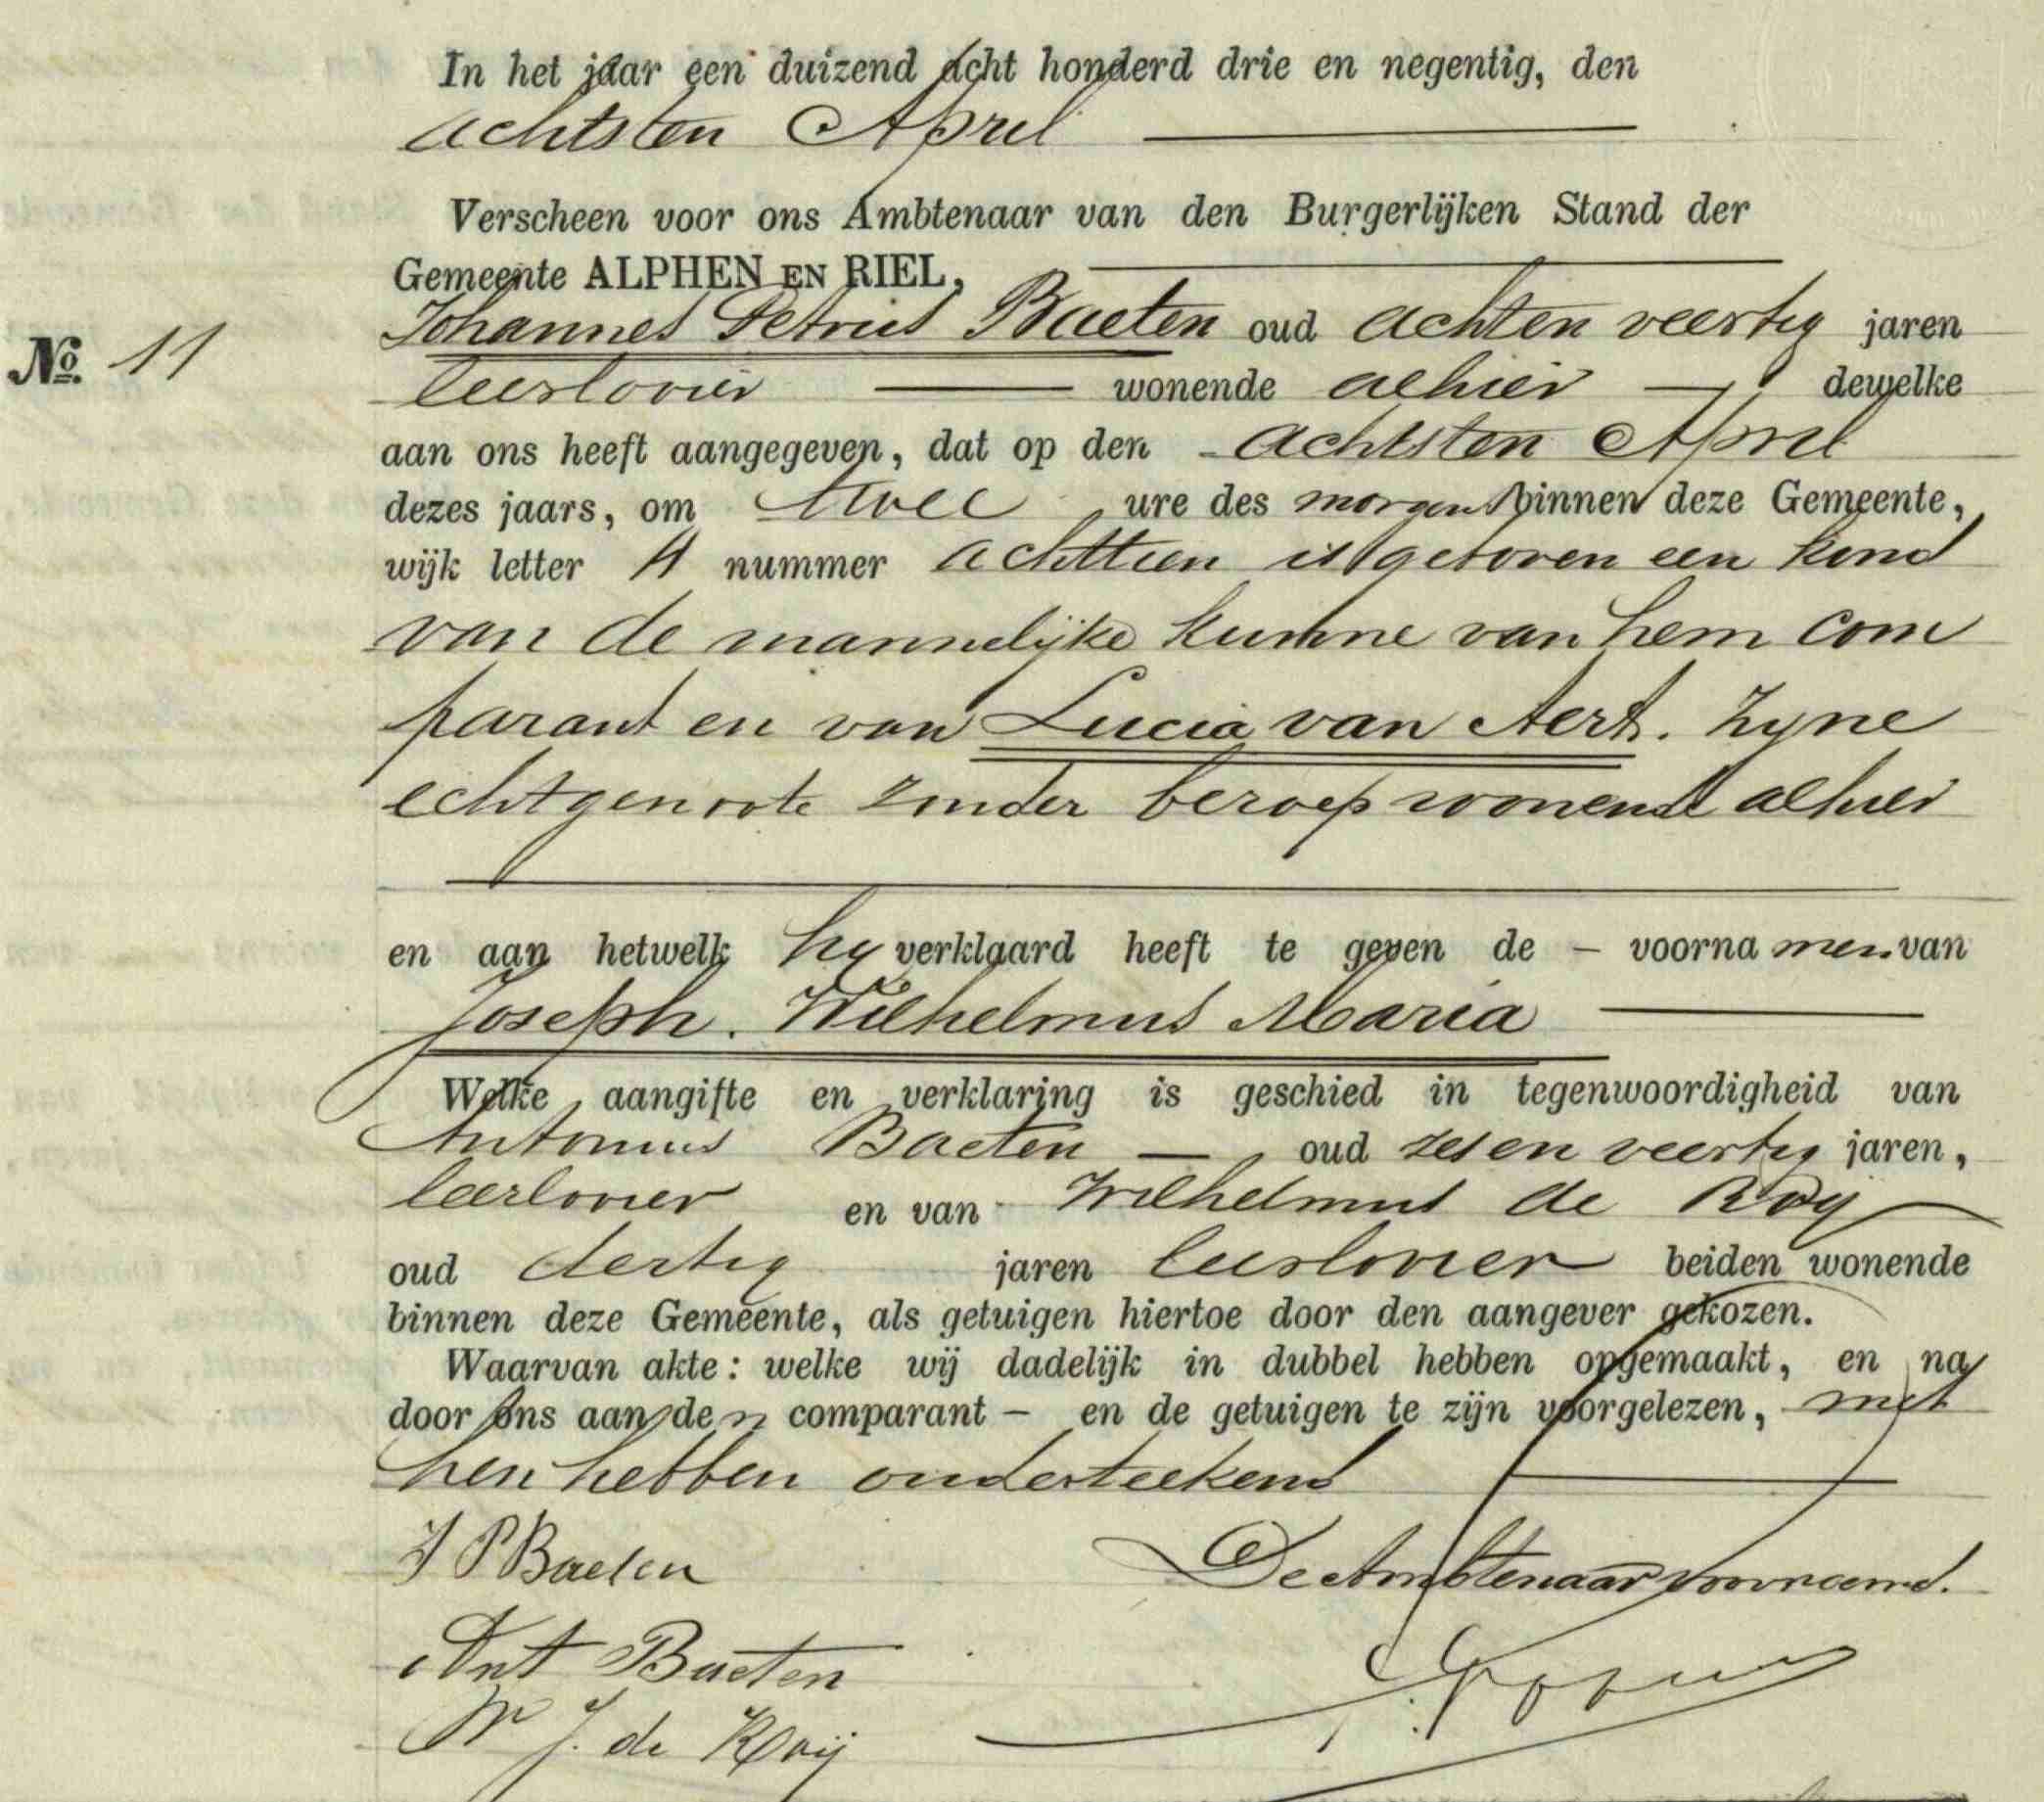 In het jaar een duizend acht honderd drie en negentig, den
achtsten April
Verscheen voor ons Ambtenaar van den Burgerlijken Stand der
Gemeente ALPHEN EN RIEL,
Johannes Petrus Baeten oud achten veertig jaren
No. 11
leerlooier wonende alhier dewelke
aan ons heeft aangegeven, dat op den achtsten April
dezes jaars, om twee ure des morgens binnen deze Gemeente,
wijk letter A nummer achttien is geboren een kind
van de mannelijke kunne van hem com
parant en van Lucia van Aert. zyne
echtgenoote zonder beroep wonende alhier
en aan hetwelk hy verklaard heeft te geven de – voorna men van
Joseph. Wilhelmus Maria
Welke aangifte en verklaring is geschied in tegenwoordigheid van
Antonius Baeten — oud zes en veertig jaren,
leerlooier en van Wilhelmus de Roy
oud dertig jaren leerlooier beiden wonende
binnen deze Gemeente, als getuigen hiertoe door den aangever gekozen.
Waarvan akte: welke wij dadelijk in dubbel hebben opgemaakt, en na
door ons aan de n comparant – en de getuigen te zijn voorgelezen, met
hen hebben onderteekend
J P Baeten
De Ambtenaar voornoemd.
Ant Baeten
W J. de Roij